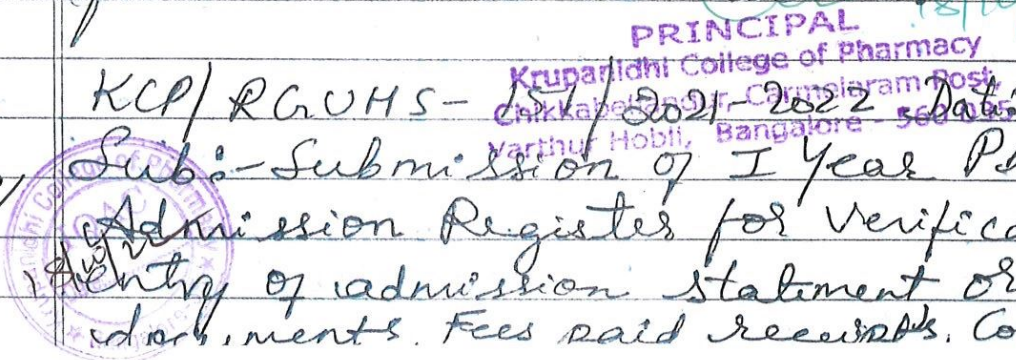 18/10
PRINCIPAL
Krupanidhi College of Pharmacy
Chikkabellandur, Carmelaram Post,
Varthur Hobli, Bangalore - 560 035
KCP/RGUHS- 2021-2022
Sub:- Submission of I Year
Admission Register for
entry of admission statement
Fees paid